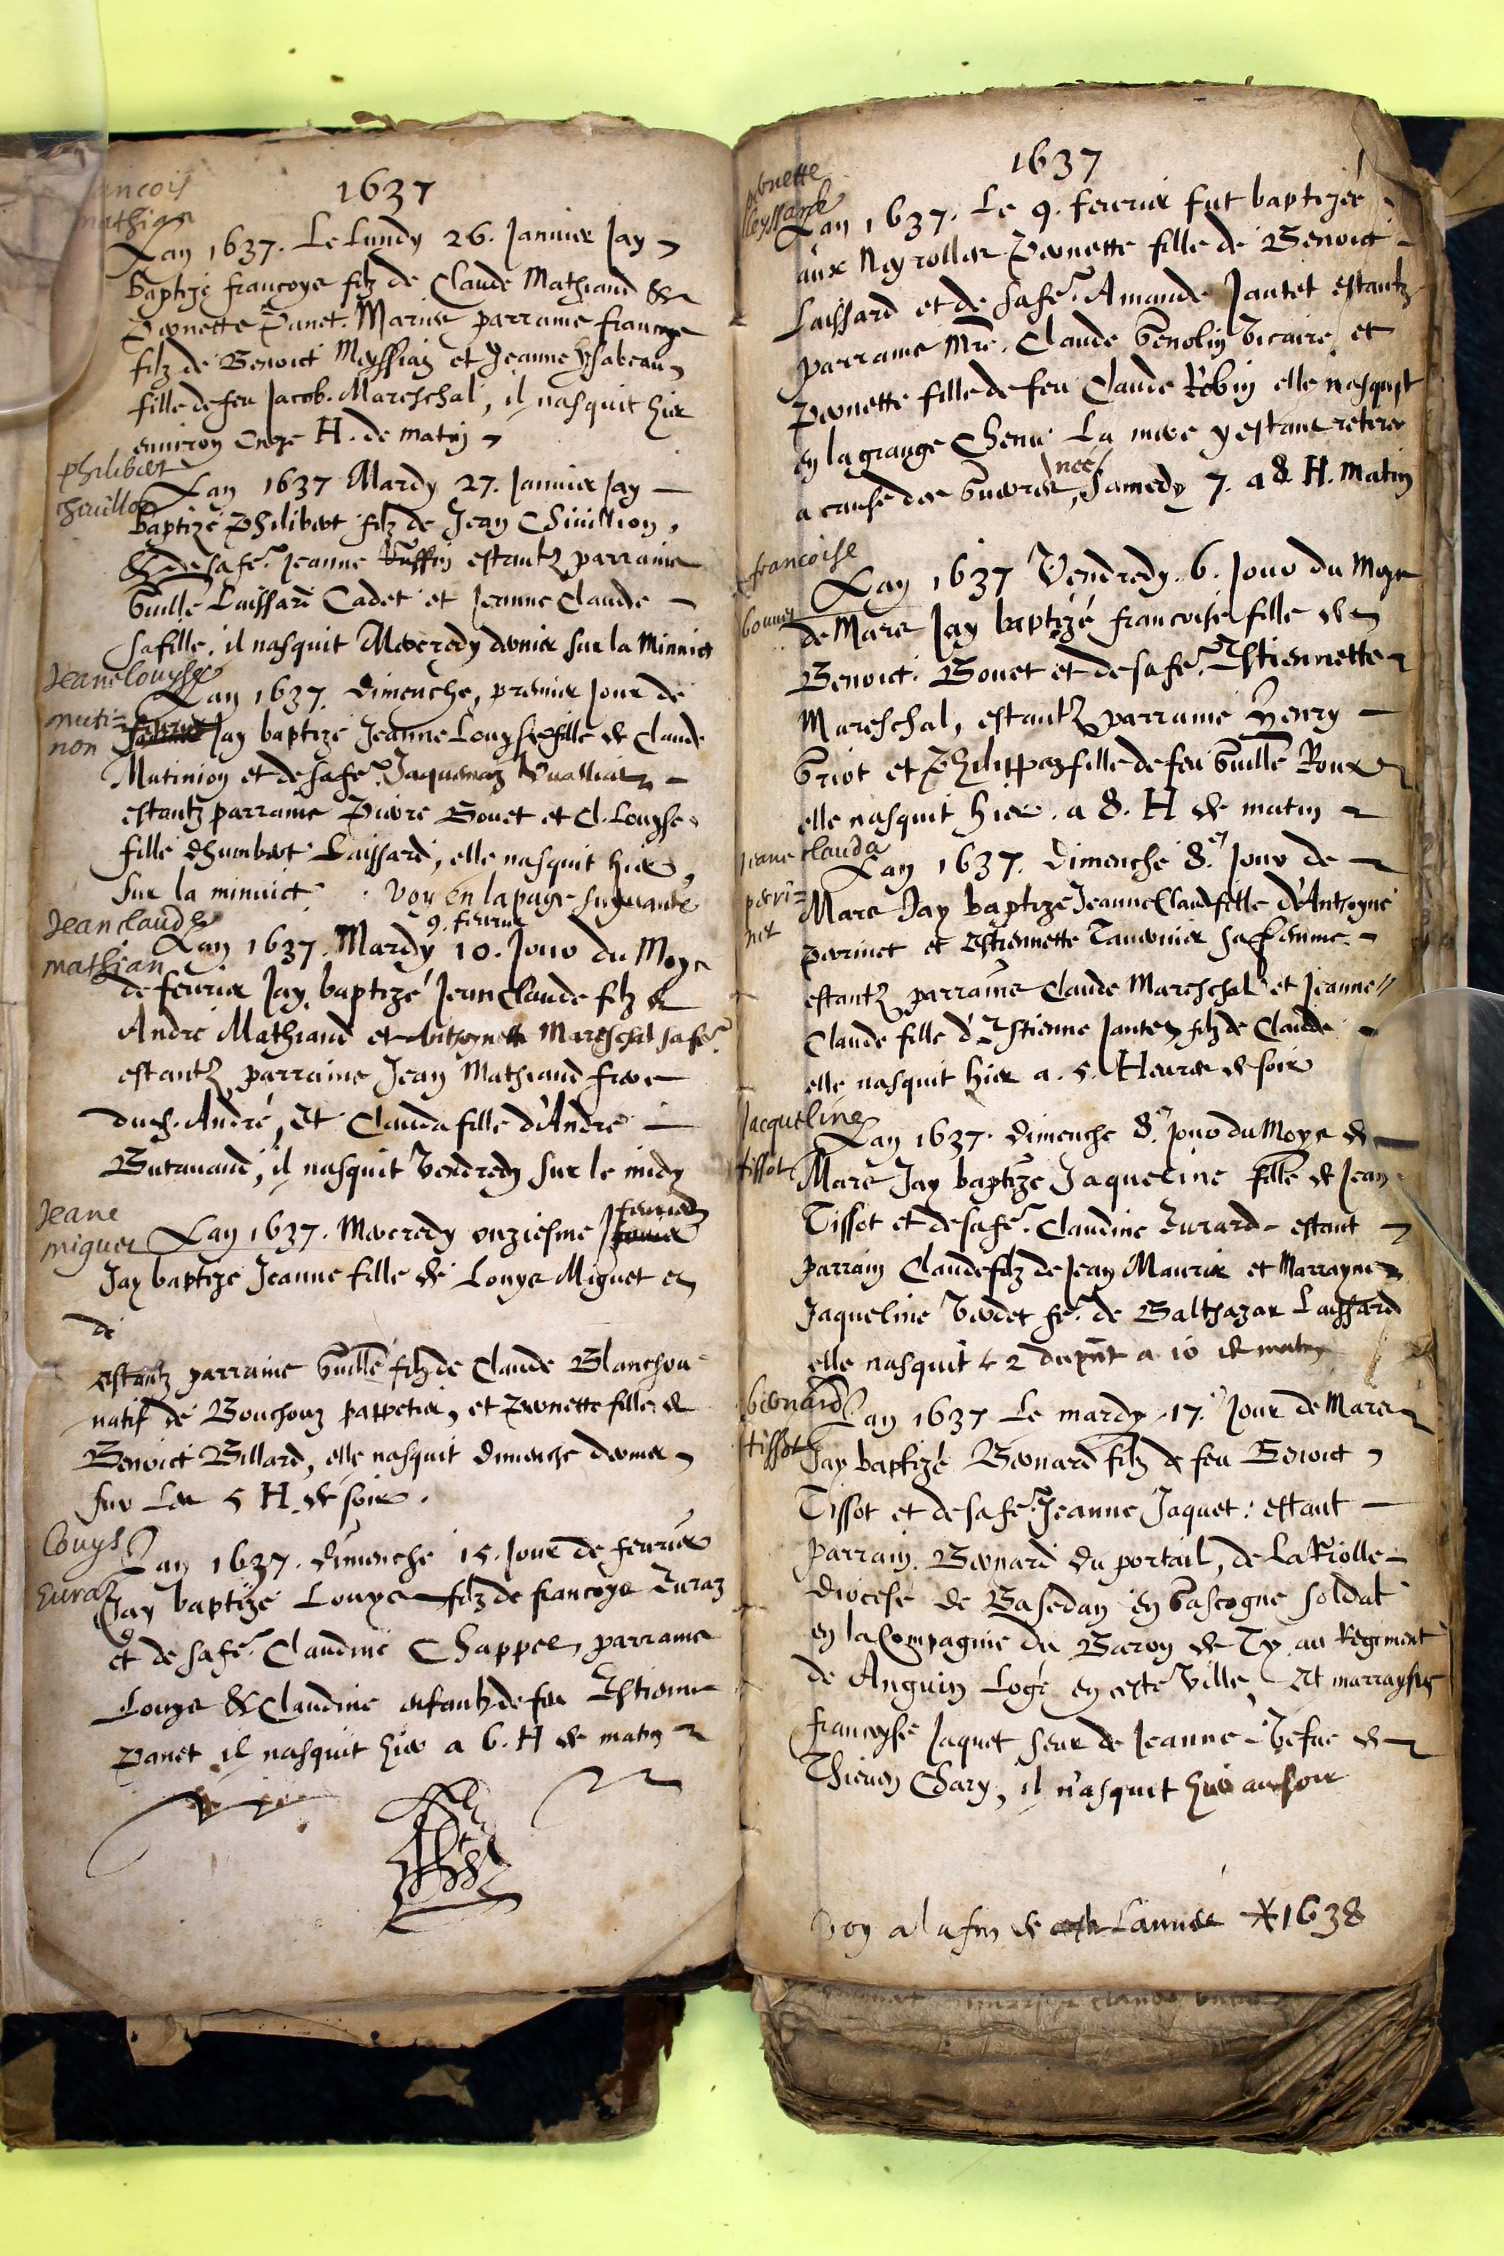 1637
francois
mathian
Lan 1637. Le Lundy 26. Januier Jay
baptizé françoys filz de Claude Mathiand &
Pernette Panet. Mariés parrains françoys
filz de Benoict Meyssiaz et Jeanne ysabeau
fille de feu Jacob. Mareschal, il nasquit hier
enuiron Onze H. de matin
philibert
chuillon
Lan 1637 Mardy 27. Januier Jay
baptizé Philibert filz de Jean Chuillion,
& de sa fe. Jeanne Ruffin estantz parrains
Guille Laissard Cadet et Jeanne Claude
sa fille. il nasquit Mercredy dernier sur la Minuict
Jeane louyse
muti=
non
Lan 1637. Dimenche, premier Jour de
feurier Jay baptizé Jeanne Louyse fille de Claude
Mutinion et de sa fe. Jaquemaz
estantz parrains Pierre Bouet et Cl. Louyse
fille dhumbert Laissard, elle nasquit hier,
sur la minuict . voy en la page suyuante
9. feurier
Jean claude
mathian
Lan 1637. Mardy 10. Jour du Moys
de feurier Jay baptizé Jean Claude filz de
André Mathiand et Anthoynette Mareschal sa fe.
estantz parrains Jean Mathiand frere
dud. André, Et Clauda fille d'André
Butauand, il nasquit Vendredy sur le midy
Jeane
miguet
Lan 1637. Mercredy onziesme feurier
Jay baptizé Jeanne fille de Louys Miguet et
de
estantz parrains Guille filz de Claude Blanchou
natif de Bouchouz pappetier, et Pernette fille de
Benoict Billard, elle nasquit Dimenche dernier
sur Les 5 H. de soir.
Louys
Lan 1637. Dimenche 15. Jour de feurier
Juraz
Jay baptizé Louys filz de françoys Juraz
et de sa fe. Claudine Chappel, parrains
Louys & Claudine enfantz de feu Estienne
Panet il nasquit hier a 6. H de matin
1637
pernette
leyssard
Lan 1637. Le 9. feurier fut baptizée
aux Neyrolles Pernette fille de Benoict
Laissard et de sa fe. Amande Jantet estantz
parrains Mre. Claude Genolin Vicaire, et
Pernette fille de feu Claude Robin elle nasquit
en la grange Chenu La mere y estant retiree
a cause des guerres, nee Samedy 7. a 8 H. Matin
francoise
bouuet
Lan 1637 Vendredy. 6. Jour du Moys
de Mars Jay baptizé francoise fille de
Benoict. Bouet et de sa fe. Estiennette
Mareschal, estantz parrains Henry
Griot et Philippaz fille de feu Guille Roux
elle nasquit hier. a 8. H de matin
Jeane clauda
perri=
net
Lan 1637. Dimenche 8.e Jour de
Mars Jay baptizé Jeanne Claud fille d'Anthoyne
perrinet et Estiennette Tauernier sa femme.
estantz parrains Claude Mareschal et Jeanne
Claude fille d'Estienne Jantet filz de Claude
elle nasquit hier a. 5. Heures de soir
Jacqueline
tissot
Lan 1637. Dimenche 8.e Jour du Moys de
Mars Jay baptizé Jaqueline fille de Jean
Tissot et de sa fe. Claudine Jurard. estant
parrain Claude filz de Jean Maurier et Marrayne
Jaqueline Verdet fe. de Balthazar Laissard
elle nasquit le 2 du pñt a 10 de matin
bernard
tissot
Lan 1637 Le mardy .17.e Jour de Mars
Jay baptizé Bernard filz de feu Benoict
Tissot et de sa fe. Jeanne Jaquet: estant
parrain. Bernard du portail, de La Riolle
Diocese de Basedan en Gascogne soldat
en la Compagnie du Baron de Ty au Regiment
de Anguin Logé en ceste ville, Et marrayne
françoyse Jaquet seur de Jeanne Vefue de
Thieuen Chary, il nasquit hier au soir
Voy a la fin de Lannée 1638